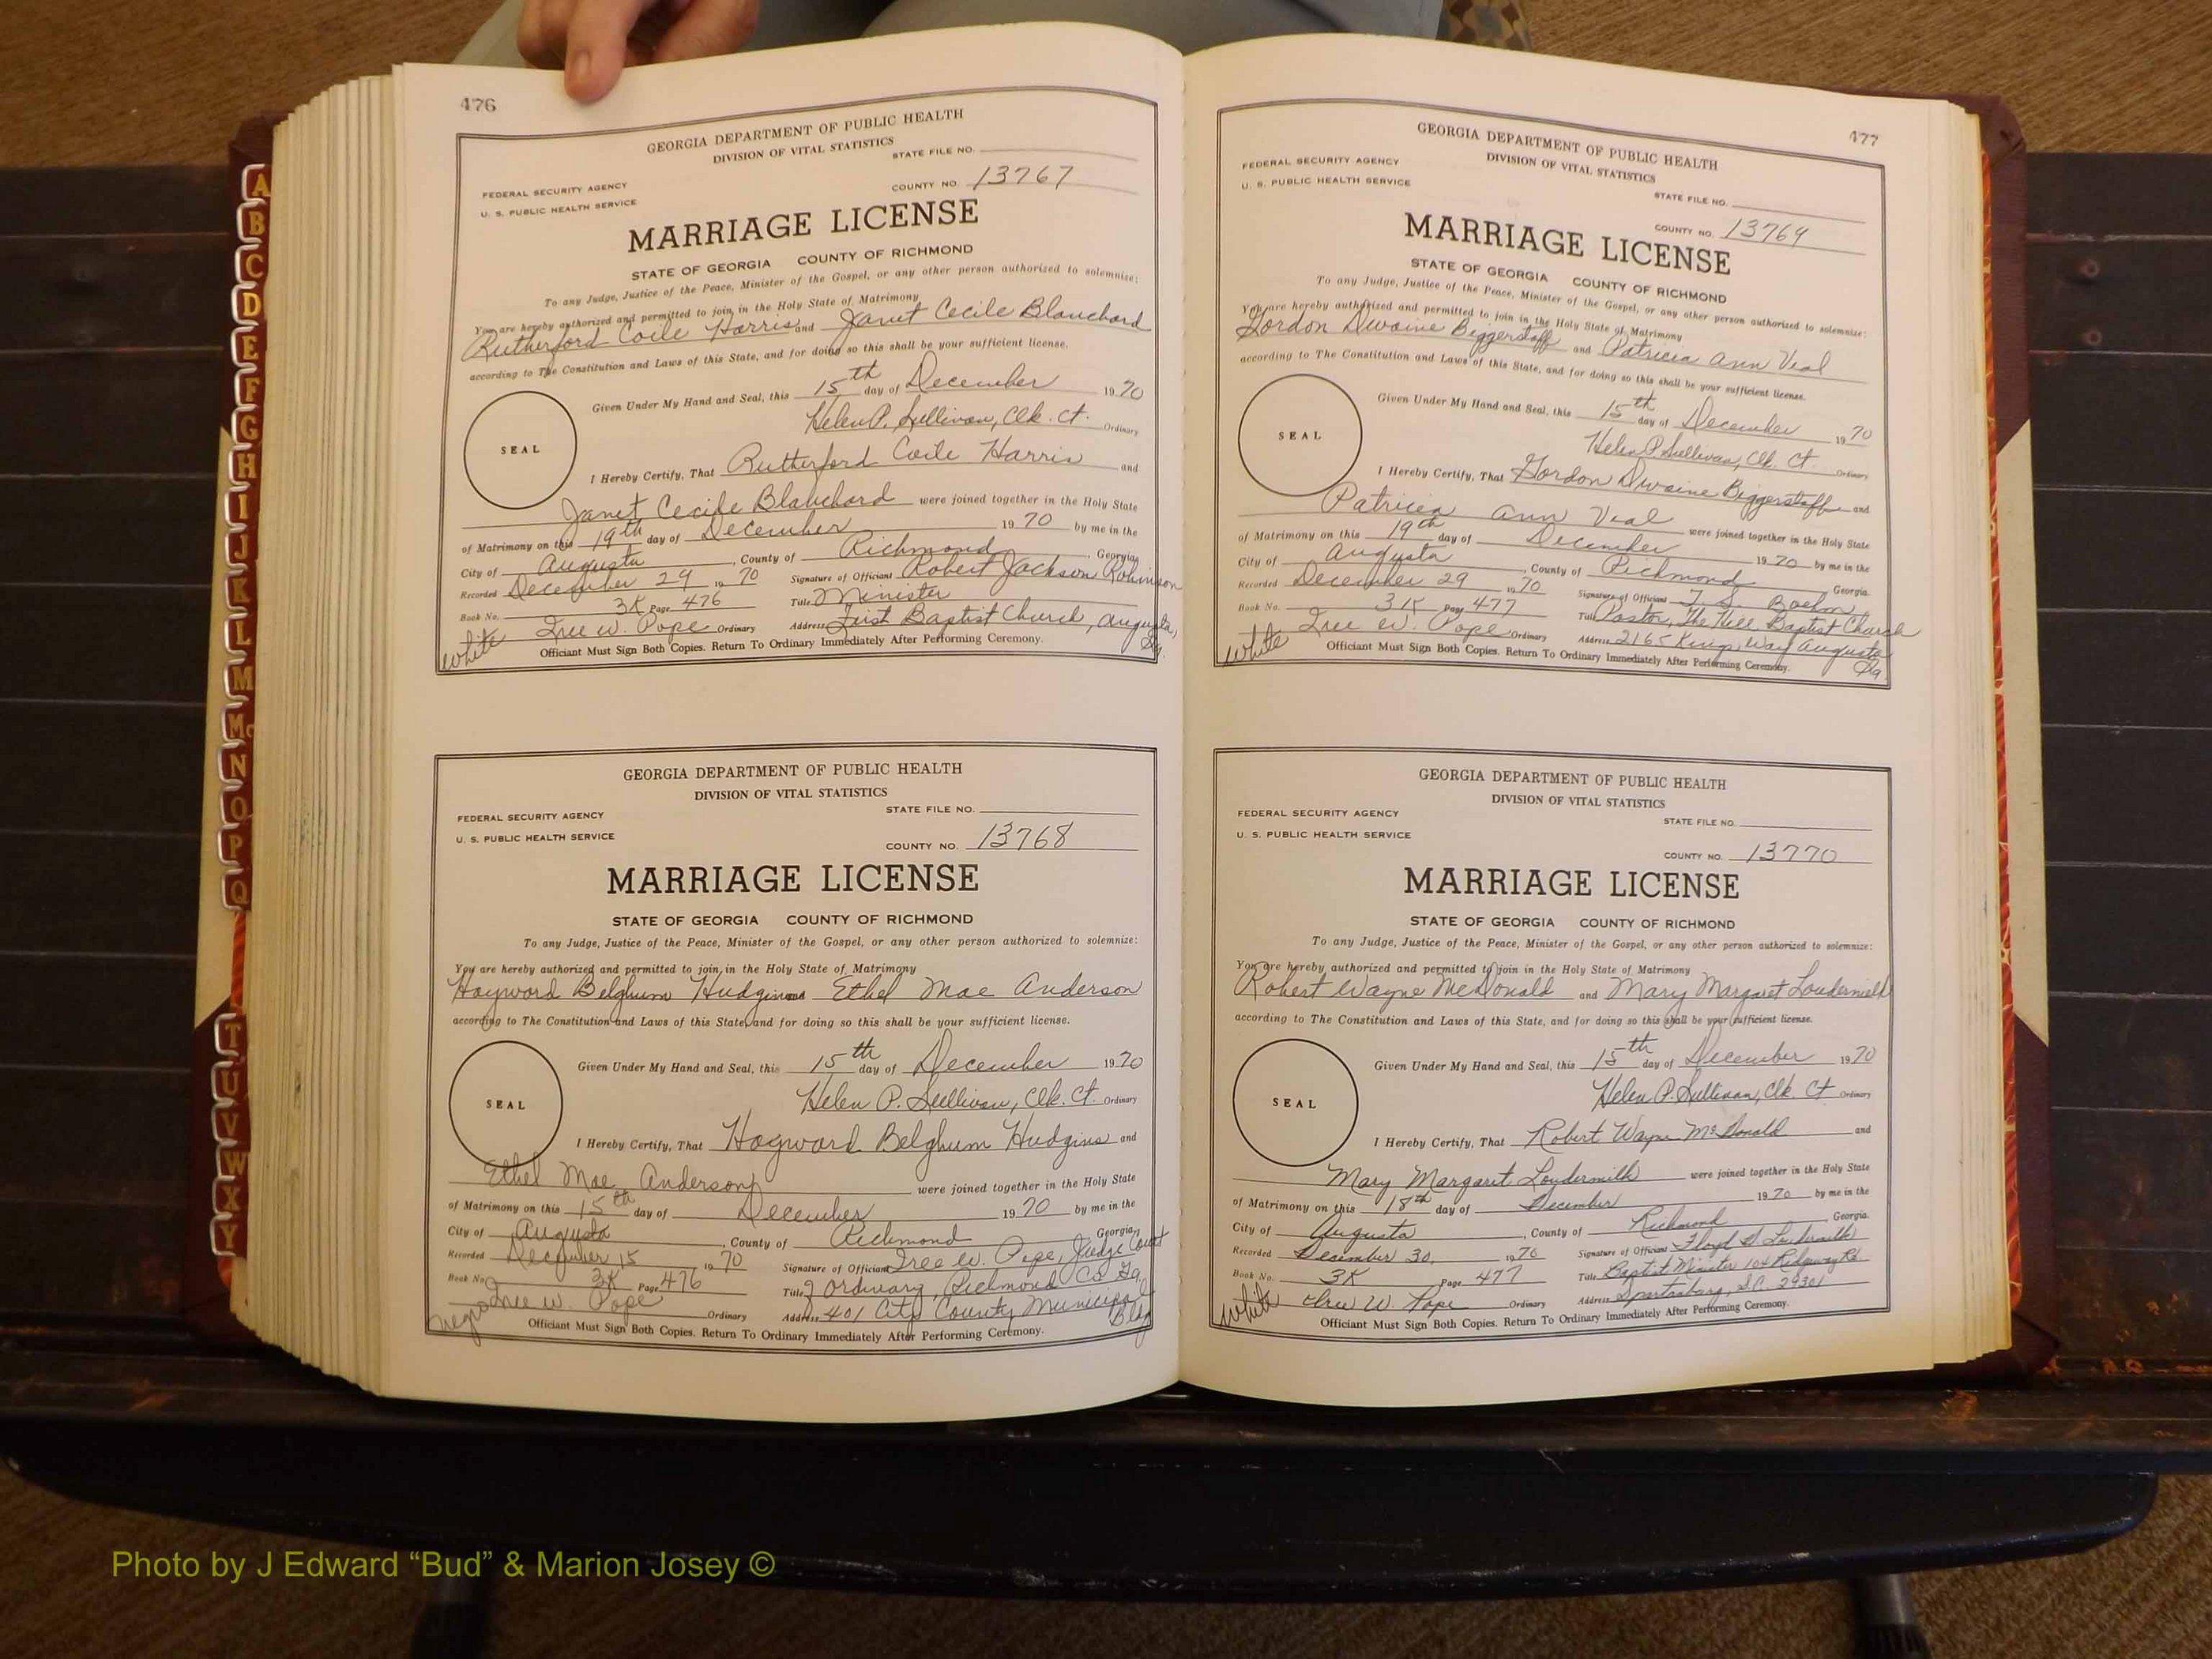 476
GEORGIA DEPARTMENT OF PUBLIC HEALTH
DIVISION OF VITAL STATISTICS
STATE FILE NO.
FEDERAL SECURITY AGENCY
COUNTY NO. 13767
U. S. PUBLIC HEALTH SERVICE
MARRIAGE LICENSE
STATE OF GEORGIA COUNTY OF RICHMOND
To any Judge, Justice of the Peace, Minister of the Gospel, or any other person authorized to solemnize:
You are hereby authorized and permitted to join in the Holy State of Matrimony
Rutherford Coile Harris and Janet Cecile Blanchard
according to The Constitution and Laws of this State, and for doing so this shall be your sufficient license.
Given Under My Hand and Seal, this 15th day of December 1970
Helen P. Sullivan, Clk. Ct. Ordinary
SEAL
I Hereby Certify, That Rutherford Coile Harris and
Janet Cecile Blanchard were joined together in the Holy State
of Matrimony on this 19th day of December 1970 by me in the
City of Augusta, County of Richmond, Georgia
Recorded December 29 1970 Signature of Officiant Robert Jackson Robinson
Book No. 3K Page 476 Title Minister
Tree W. Pope Ordinary Address First Baptist Church, Augusta, Ga.
white
Officiant Must Sign Both Copies. Return To Ordinary Immediately After Performing Ceremony.
GEORGIA DEPARTMENT OF PUBLIC HEALTH
DIVISION OF VITAL STATISTICS
FEDERAL SECURITY AGENCY
STATE FILE NO.
U. S. PUBLIC HEALTH SERVICE
COUNTY NO. 13768
MARRIAGE LICENSE
STATE OF GEORGIA COUNTY OF RICHMOND
To any Judge, Justice of the Peace, Minister of the Gospel, or any other person authorized to solemnize:
You are hereby authorized and permitted to join in the Holy State of Matrimony
Hayward Belghum Hudgins and Ethel Mae Anderson
according to The Constitution and Laws of this State, and for doing so this shall be your sufficient license.
Given Under My Hand and Seal, this 15th day of December 1970
Helen P. Sullivan, Clk. Ct. Ordinary
SEAL
I Hereby Certify, That Hayward Belghum Hudgins and
Ethel Mae Anderson were joined together in the Holy State
of Matrimony on this 15th day of December 1970 by me in the
City of Augusta, County of Richmond, Georgia
Recorded December 15 1970 Signature of Officiant Tree W. Pope, Judge Court
Book No. 3K Page 476 Title of Ordinary, Richmond Co. Ga.
Tree W. Pope Ordinary Address 401 City County Municipal Bldg
negro
Officiant Must Sign Both Copies. Return To Ordinary Immediately After Performing Ceremony.
477
GEORGIA DEPARTMENT OF PUBLIC HEALTH
DIVISION OF VITAL STATISTICS
FEDERAL SECURITY AGENCY
U. S. PUBLIC HEALTH SERVICE
STATE FILE NO.
COUNTY NO. 13769
MARRIAGE LICENSE
STATE OF GEORGIA COUNTY OF RICHMOND
To any Judge, Justice of the Peace, Minister of the Gospel, or any other person authorized to solemnize:
You are hereby authorized and permitted to join in the Holy State of Matrimony
Gordon Dwaine Biggerstaff and Patricia Ann Veal
according to The Constitution and Laws of this State, and for doing so this shall be your sufficient license.
Given Under My Hand and Seal, this 15th day of December 1970
Helen P. Sullivan, Clk. Ct. Ordinary
SEAL
I Hereby Certify, That Gordon Dwaine Biggerstaff and
Patricia Ann Veal were joined together in the Holy State
of Matrimony on this 19th day of December 1970 by me in the
City of Augusta, County of Richmond Georgia.
Recorded December 29 1970 Signature of Officiant T. S. Boehm
Book No. 3K Page 477 Title Pastor, The Hill Baptist Church
Tree W. Pope Ordinary Address 2165 Kings Way Augusta Ga.
white
Officiant Must Sign Both Copies. Return To Ordinary Immediately After Performing Ceremony.
GEORGIA DEPARTMENT OF PUBLIC HEALTH
DIVISION OF VITAL STATISTICS
FEDERAL SECURITY AGENCY
STATE FILE NO.
U. S. PUBLIC HEALTH SERVICE
COUNTY NO. 13770
MARRIAGE LICENSE
STATE OF GEORGIA COUNTY OF RICHMOND
To any Judge, Justice of the Peace, Minister of the Gospel, or any other person authorized to solemnize:
You are hereby authorized and permitted to join in the Holy State of Matrimony
Robert Wayne McDonald and Mary Margaret Loudermilk
according to The Constitution and Laws of this State, and for doing so this shall be your sufficient license.
Given Under My Hand and Seal, this 15th day of December 1970
Helen P. Sullivan, Clk. Ct Ordinary
SEAL
I Hereby Certify, That Robert Wayne McDonald and
Mary Margaret Loudermilk were joined together in the Holy State
of Matrimony on this 18th day of December 1970 by me in the
City of Augusta, County of Richmond Georgia.
Recorded December 30, 1970 Signature of Officiant Floyd Loudermilk
Book No. 3K Page 477 Title Baptist Minister 104 Ridgeway Rd
Tree W. Pope Ordinary Address Spartanburg, S.C. 29301
white
Officiant Must Sign Both Copies. Return To Ordinary Immediately After Performing Ceremony.
A
B
C
D
E
F
G
H
I
J
K
L
M
Mc
N
O
P
Q
T
U
V
W
X
Y
Photo by J Edward “Bud” & Marion Josey ©